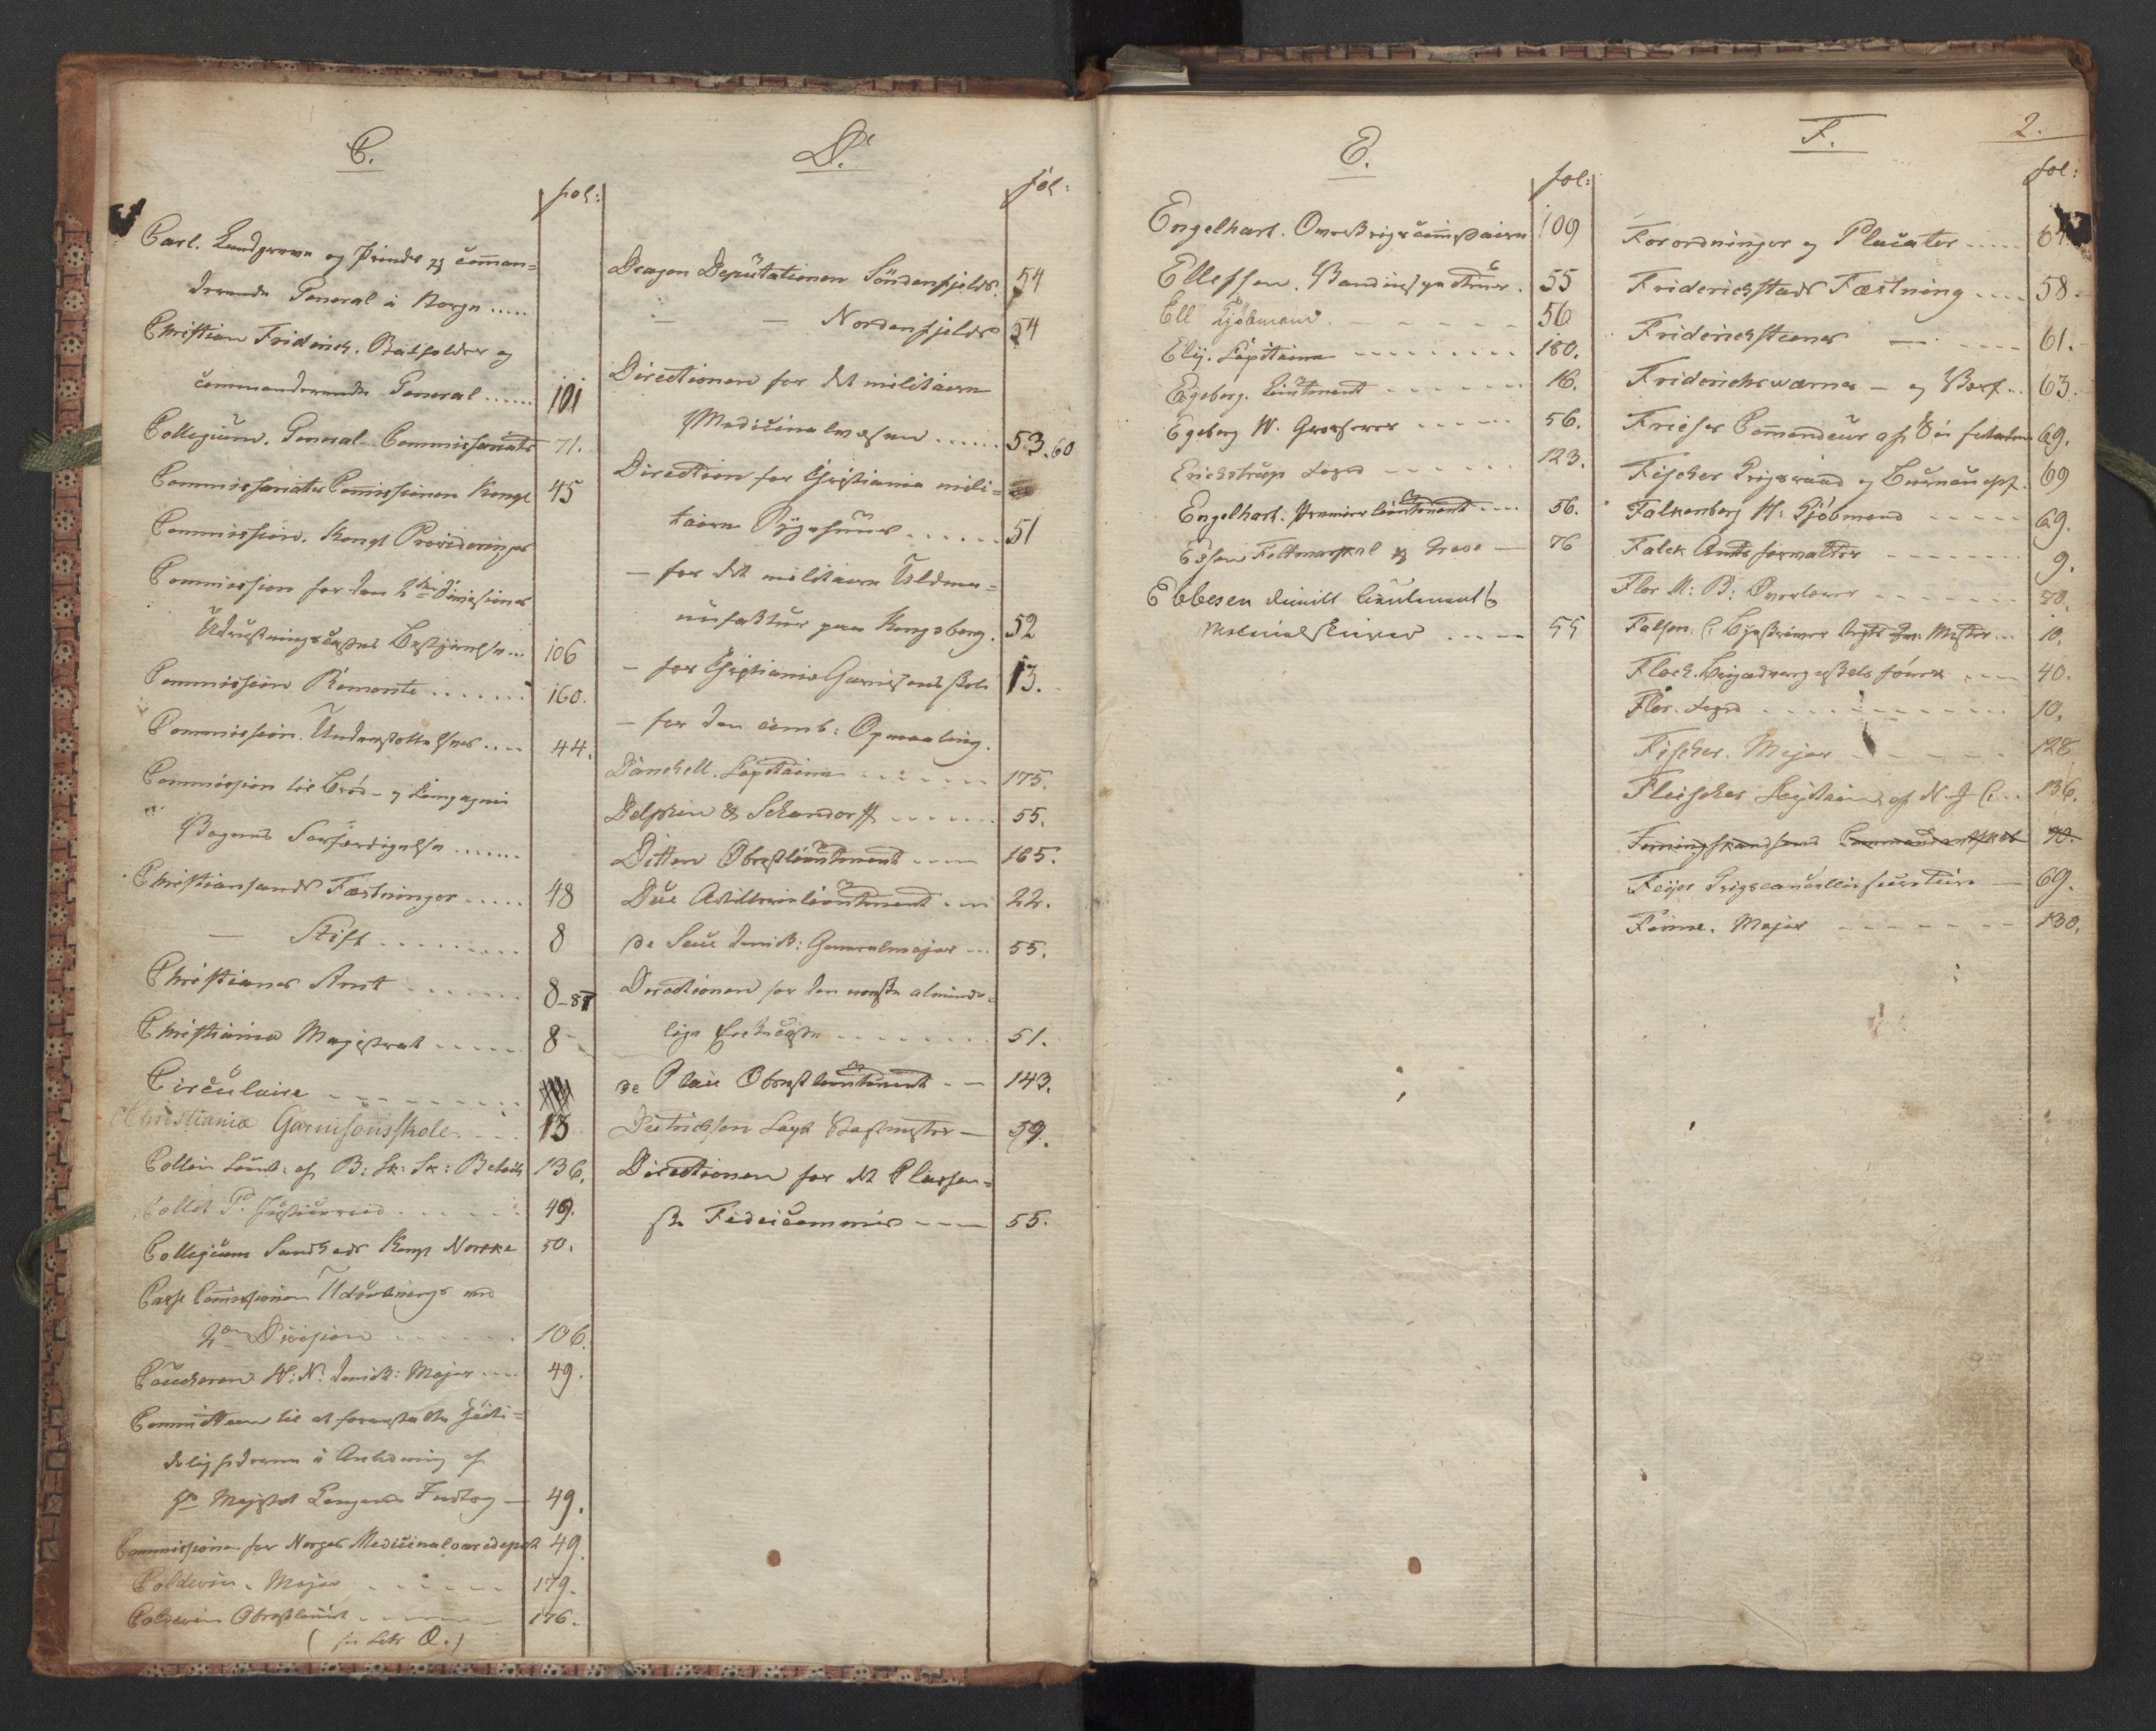 C.
fol:
Carl. Landgreve og Prinds og comman=
derende General i Norge .....
Christian Friderich. Statholder og
commanderende General ...... 101
Collegium. General-Commissariats 71.
Commissariats Commissionen Kongl 45
Commission. Kongl Providerings
Commission for den 2den Divisions
Udrustningscasses Bestyrelse ... 106
Commission Remonte ....... 160.
Commission. Understøttelses .... 44.
Commission til Brød- og
Vognes Forfærdigelse ......
Christiansands Fæstninger ..... 48
— Stift ......... 8
Christians Amt ....... 8-87
Christiania Magistrat ..... 8
Circulaire
Christiania Garnisonsskole .... 13
Collin 136.
Collet P. Justitsraad ...... 49.
Collegium Sundheds Kongl Norske 50.
Casse Commissionen Udrustnings ved
2den Division ...... 106.
H: N: Major .... 49.
Committeen til at foranstalte Høiti=
deligheder i Anledning af
Hs Majestæt Kongens Indtog — 49.
Commissionen for Norges Medicinalvaredepot 49.
Coldevin. Major ...... 179.
Coldevin Obrstlieut ...... 176.
(se Litr Q.)
D.
fol:
Dragon Deputationen Søndenfjelds. 54
— — Nordenfjelds 54
Directionen for det militaire
Medicinalvæsen ...... 53.60
Direction for Christiania mili=
taire Sygehuus ...... 51
— for det militaire Uldma=
nufactur paa Kongsberg. 52
— for Christiania Garnisons Skole 13.
— for den comb: Opmaaling.
Dänchell. Capitaine ....... 175.
Delphin & Schandorff ...... 55.
Ditten Obrstlieutenant .... 165.
Due Artillerielieutenant ... 22.
de Seue Generalmajor ... 55.
Directionen for den norske alminde=
lige Enkecasse ........ 51.
de Place Obrstlieutenant -- 143.
Dietrichson — 59.
Directionen for det Clasen=
ske Fideicommis ---- 55.
E.
fol:
Engelhart. Overkrigscommissaire 109
Ellefsen. 55
Ell Kjøbmand. - - - - - 56
Ely. Capitaine - - - - - - 180.
Egeberg. Lieutenant - - - - - 16.
Egeberg W. Grosserer - - - - 56.
Erichstrup Foged - - - - - 123.
Engelhart. Premierlieutenant .... 56.
Essen Feltmarskal og Greve — 76
Ebbesen dimitt Lieutenant &
Materialskriver ..... 55
F.
2.
fol:
Forordninger og Placater .....
Friderichstads Fæstning .... 58.
Friderichsteens — .... 61.
Friderichsværns — og Værf .. 63.
Frieser Commandeur af Søe Etaten 69.
Fischer Krigsraad og Bureauchef. 69
Falkenberg H: Kjøbmand ..... 69.
Falck Amtsforvalter ....... 9.
Flor M: B: Overlærer ....... 70.
Falsen. C: 10.
Flock. 40.
Flor. Foged ......... 10.
Fischer. Major - - - - - 128
Fleischer Capitaine af N: J: C: .. 136.
Commandantskab 70.
Feijer Krigscancellisecretair — 69.
Finne. Major - - - - - - 130.